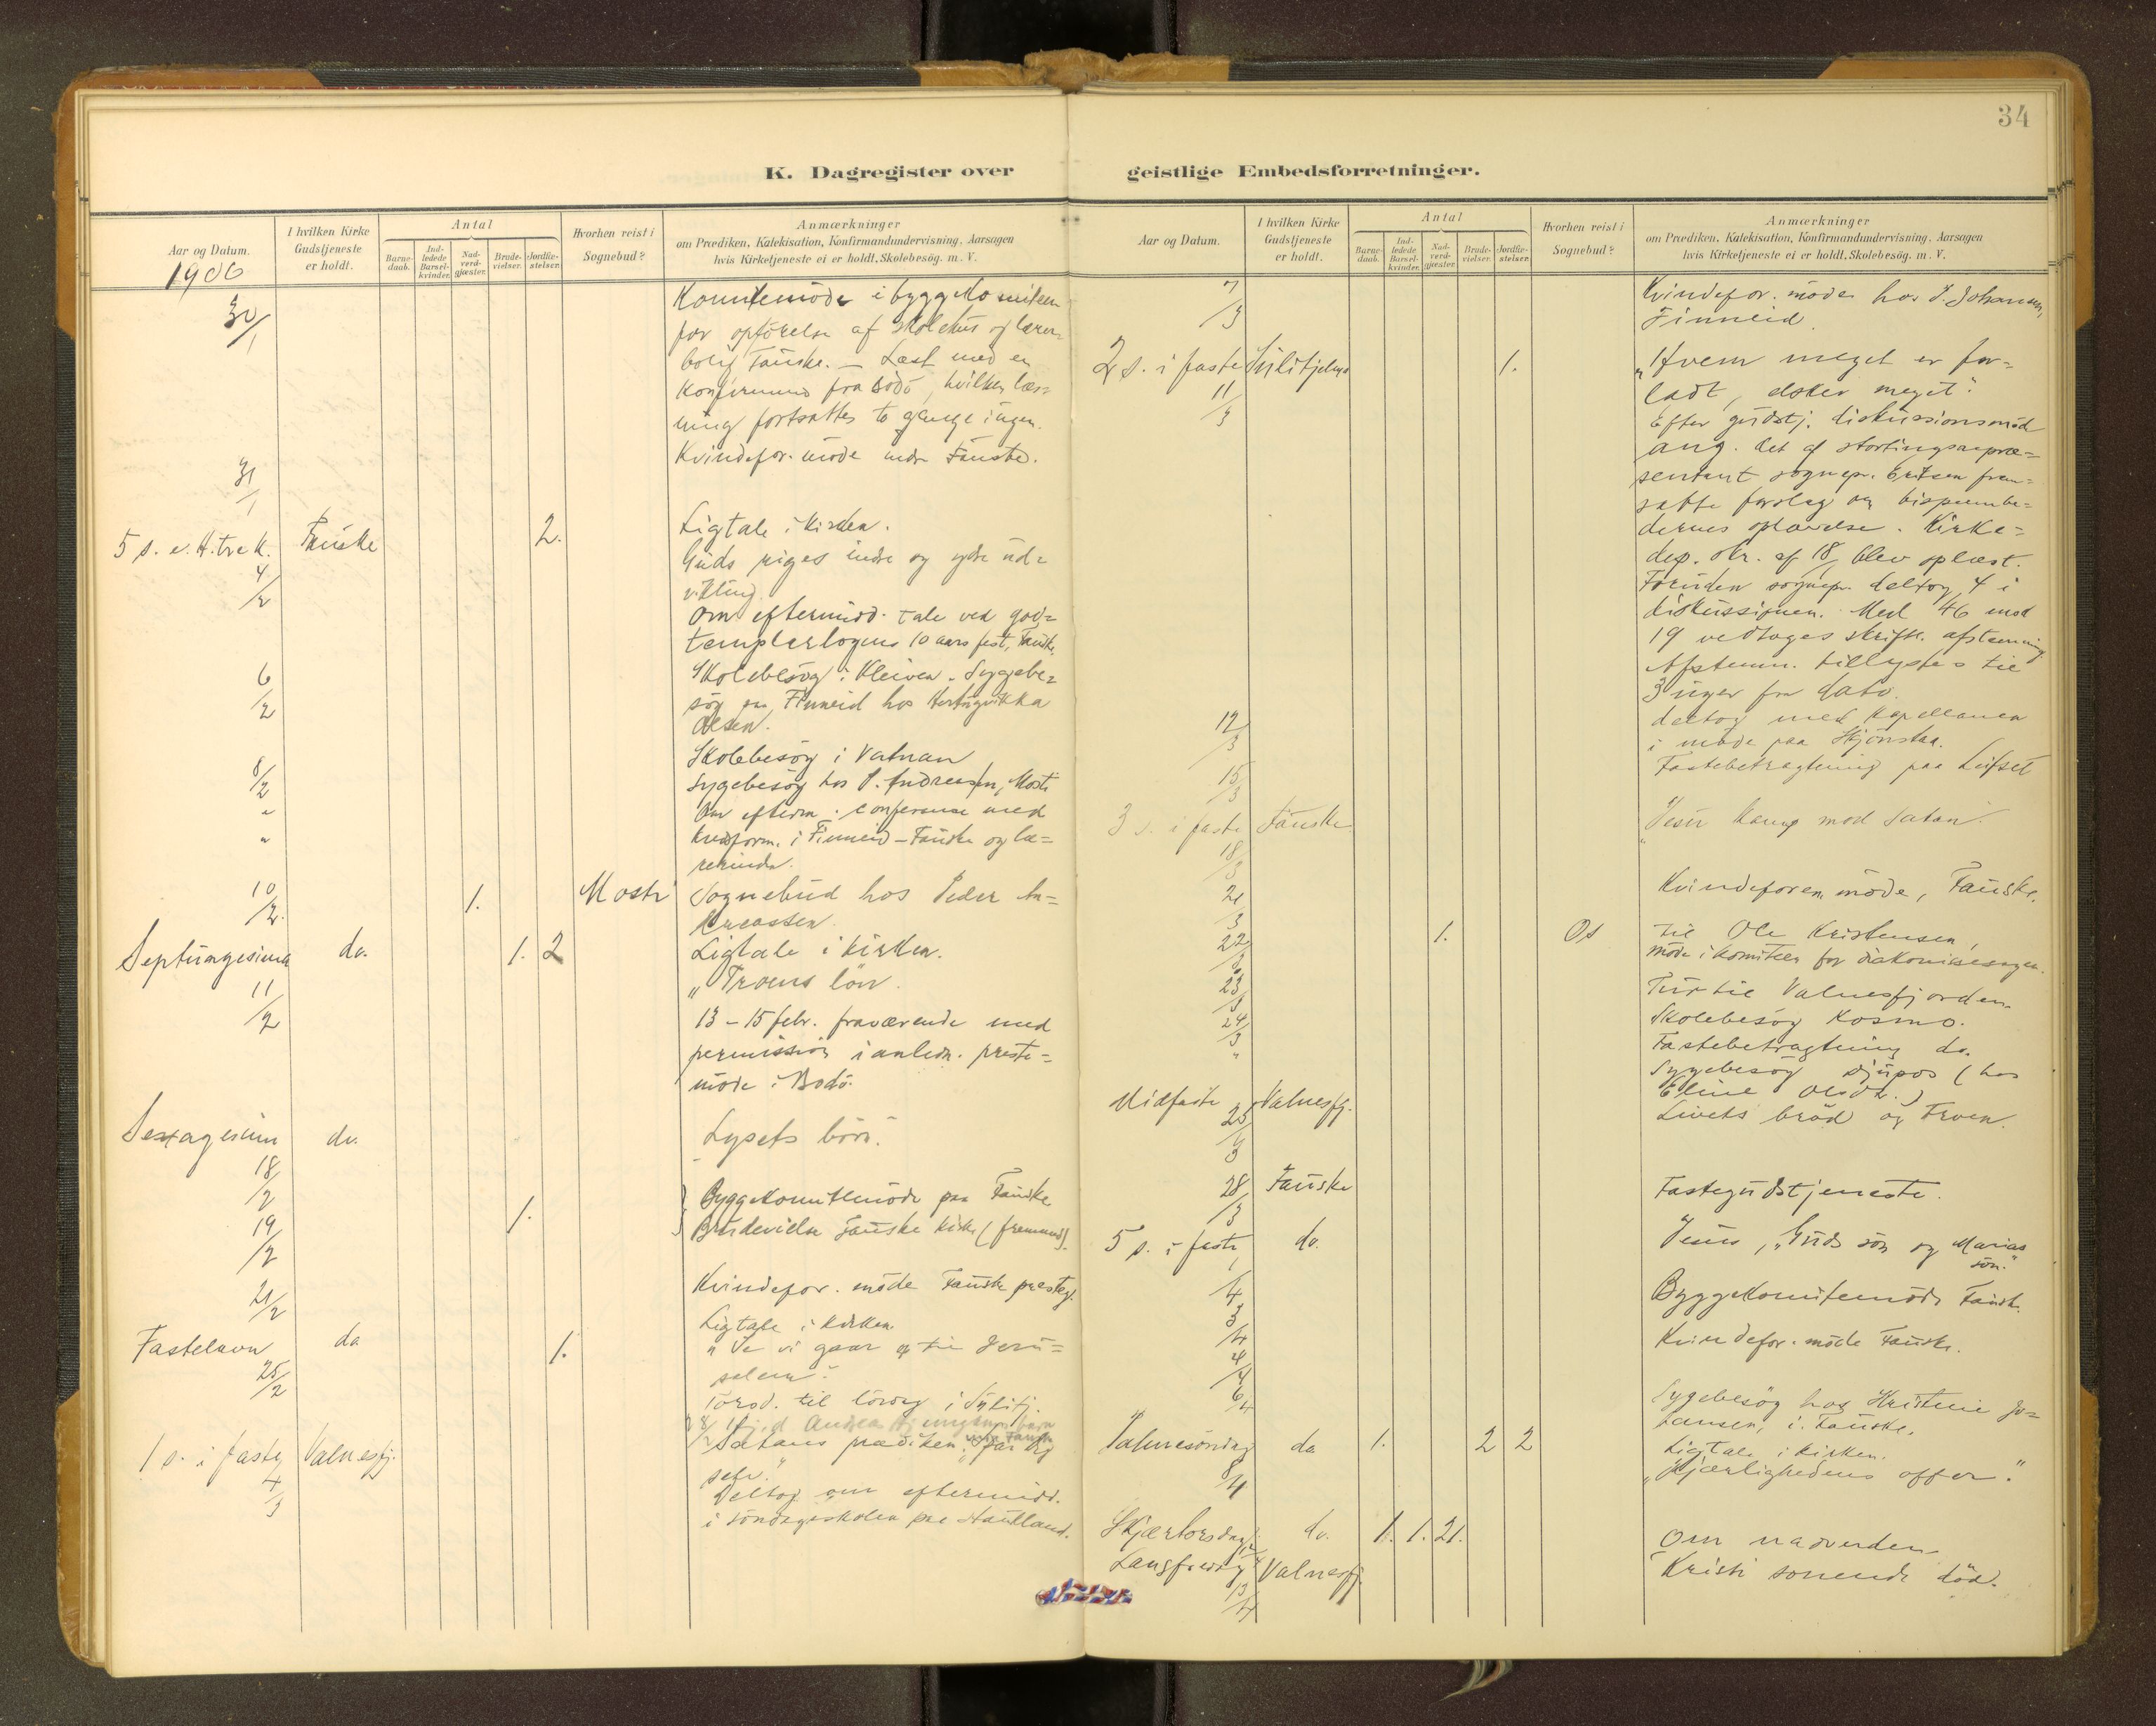 34
K. Dagregister over
Aar og Datum.
1906
I hvilken Kirke Gudstjeneste er holdt.
Antal
Barne-daab.
Ind-ledede Barsel-kvinder.
Nad-verd-gjæster.
Brude-vielser.
Jordfæ-stelser.
Hvorhen reist i Sognebud?
Anmærkninger
om Prædiken, Katekisation, Konfirmandundervisning, Aarsagen
hvis Kirketjeneste ei er holdt. Skolebesøg. m. V.
30/1 Komitemöde i byggekomiteen
for opförelse af skolehus og lærer-
bolig Fauske. – Læst med en
konfirmand fra Bodö, hvilken læs=
ning fortsattes to gange i ugen.
31/1 Kvindefor. möde Fauske.
5 s. e. H. tre k. Fauske 2. Ligtale i kirken.
4/2 Guds riges indre og ydre ud=
vikling.
Om eftermidd. tale ved god=
templarlogens 10 aars fest, Fauske.
6/2 Skolebesög i Kleiven. Sygebe=
sög paa Finneid hos
Olsen.
8/2 Skolebesög i Vatnan
" Sygebesög hos P. Andreassen, Mosti
" Om efterm. conferense med
kredsform. i Finneid – Fauske og læ=
rerinde.
10/2. 1. Mosti Sognebud hos Peder An=
dreassen.
Septuagesima do. 1. 2 Ligtale i kirken.
11/2 „Troens lön.
13 – 15 febr. fraværende med
permission i anledn. preste=
möde i Bodö.
Sexagesima do. Lysets börn.
18/2
19/2 1. Byggekomitemöde paa Fauske
Brudevielse Fauske kirke (fremmed).
21/2 Kvindefor. möde Fauske presteg.
Fastelavn da 1. Ligtale i kirken
25/2 „Se vi gaar op til Jeru=
salem".
Torsd. til lördag i Sulitj.
1 s. i faste Valnesfj. Satans prædiken: „Spar dig
4/3 selv."
Deltog om eftermidd.
i söndagsskolen paa
geistlige Embedsforretninger.
Aar og Datum.
I hvilken Kirke Gudstjeneste er holdt.
Antal
Barne-daab.
Ind-ledede Barsel-kvinder.
Nad-verd-gjæster.
Brude-vielser.
Jordfæ-stelser.
Hvorhen reist i Sognebud?
Anmærkninger
om Prædiken, Katekisation, Konfirmandundervisning, Aarsagen
hvis Kirketjeneste ei er holdt. Skolebesøg. m. V.
7/3 Kvindefor. möde hos J. Johansen,
Finneid.
2 s. i faste Sulitjelma 1. „Hvem meget er for=
11/3 ladt, elsker meget".
Efter gudstj. diskussionsmöde
ang. det af stortingsrepræ=
sentant sognepr. Eriksen frem=
satte forslag om bispeembe=
dernes oplævelse. Kirke=
dep. skr. af 18/1 blev oplæst.
Foruden sognepr. deltog 4 i
diskussionen. Med 46 mod
19 vedtoges skriftl. afstemning.
Afstemn. tillystes til
3 uger fra dato.
12/3 deltog med kapellanen
i möde paa Skjönstaa.
15/3 Fastebetragtning paa Leifset
3 s. i faste Fauske. „Jesu kamp mod Satan".
18/3
21/3 Kvindeforen. möde, Fauske.
22/3 1. Os til Ole Kristensen,
möde i komiteen for diakonissesagen.
23/3 Tur til Valnesfjorden.
24/3 Skolebesög Kosmo.
" Fastebetragtning do.
Sygebesög Djupos (hos
Eline Olsdt.)
Midfaste Valnesfj. Livets bröd og Troen.
25/3
28/3 Fauske Fastegudstjeneste.
5 s. i faste do. Jesus, „Guds sön og Marias
sön."
1/4
3/4 Byggekomitemöde Fauske.
4/4 Kvindefor. möde Fauske.
6/4 Sygebesög hos Kristine Jo=
hansen, i Fauske.
Palmesöndag do 1. 2 2 Ligtale i kirken.
8/4 „Kjærlighedens offer."
Skjærtorsdag do. 1. 1. 21. Om nadverden
12/4
Langfredag Valnesfj. Kristi sonende död.
13/4